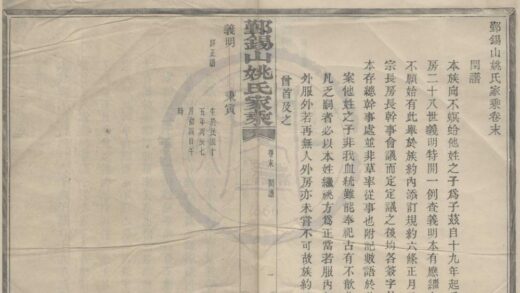 鄞錫山姚氏家乘卷末
閏譜
本族向不嫔給他姓之子爲子茲自十九年起
房二十八世義明特開一例查義明本有應
不願始有此舉於族約內添訂規約六條正月
宗長房長幹事會議而定定議之後均各簽字
本存總幹事處並非草率從事也附記數語於
案他姓之子非我血統雖能奉祀古有不歆
凡乏嗣者必以本姓繼祧方爲正當若服內
外服外若再無人外房亦未嘗不可故族約
曾首及之
鄞錫山姚氏家乘
卷末
閏譜
一
義明
寅
生於民國十
五年丙寅七
月初四日午
時